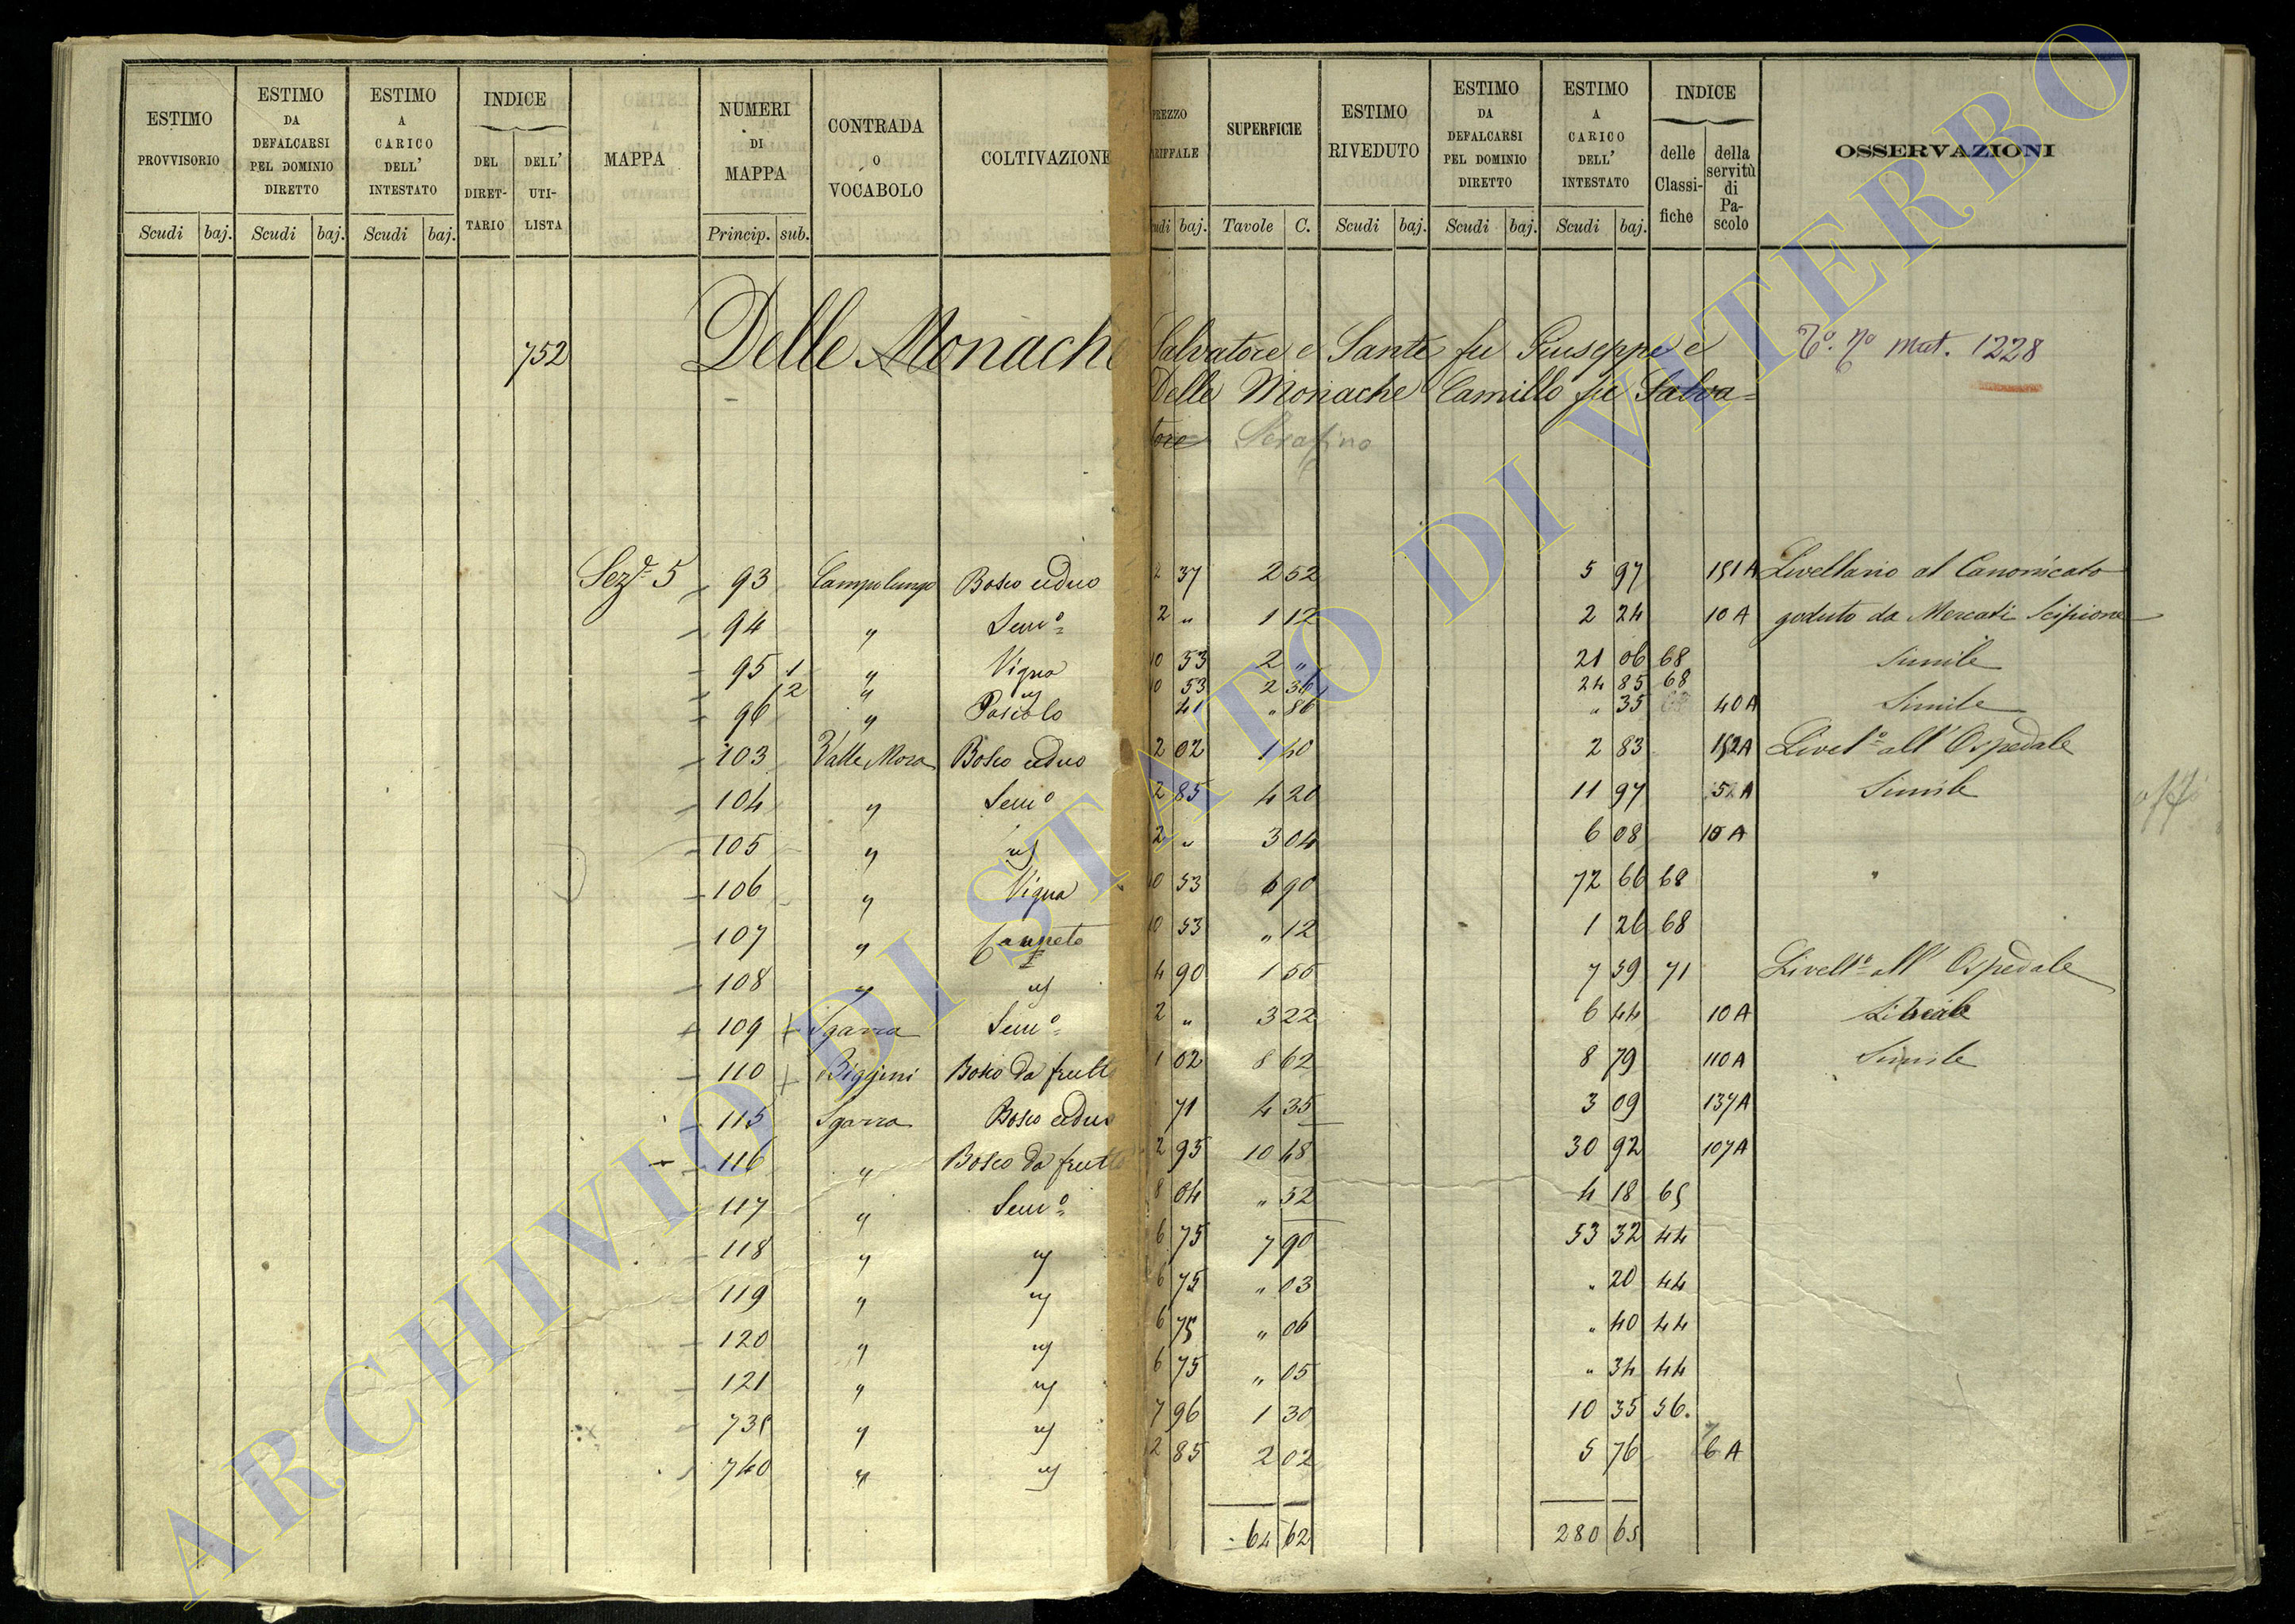 ESTIMO PROVVISORIO Scudi baj. | ESTIMO DA DEFALCARSI PEL DOMINIO DIRETTO Scudi baj. | ESTIMO A CARICO DELL' INTESTATO Scudi baj. | INDICE DEL DIRETTARIO DELL' UTILISTA | MAPPA | NUMERI DI MAPPA Princip. sub. | CONTRADA O VOCABOLO | COLTIVAZIONE | PREZZO TARIFFALE Scudi baj. | SUPERFICIE Tavole C. | ESTIMO RIVEDUTO Scudi baj. | ESTIMO DA DEFALCARSI PEL DOMINIO DIRETTO Scudi baj. | ESTIMO A CARICO DELL' INTESTATO Scudi baj. | INDICE delle Classifiche della servitù di Pascolo | OSSERVAZIONI
752 Delle Monache Salvatore e Sante fu Giuseppe e mat. 1228
Delle Monache Camillo fu Salva=
tore Serafino
Sez.e 5 93 Campolungo Bosco ceduo 2 37 2 52 5 97 151 A Livellario al Canonicato
94 " Sem.o 2 " 1 12 2 24 10 A goduto da Mercati Scipione
95 1 " Vigna 10 53 2 " 21 06 68 Simile
2 " " 10 53 2 36 24 85 68
96 " Pascolo 41 " 86 " 35 40 A Simile
103 Valle Mora Bosco ceduo 2 02 1 40 2 83 152 A Livel.o all' Ospedale
104 " Sem.o 2 85 4 20 11 97 5 A Simile
105 " " 2 " 3 04 6 08 10 A
106 " Vigna 10 53 6 90 72 66 68 "
107 " Canneto 10 53 " 12 1 26 68
108 " " 4 90 1 55 7 59 71 Livell.o all' Ospedale
109 Sgarra Sem.o 2 " 3 22 6 44 10 A
110 Biggini Bosco da frutto 1 02 8 62 8 79 110 A Simile
115 Sgarra Bosco ceduo 71 4 35 3 09 137 A
116 " Bosco da frutto 2 95 10 48 30 92 107 A
117 " Sem.o 8 04 " 52 4 18 65
118 " " 6 75 7 90 53 32 44
119 " " 6 75 " 03 " 20 44
120 " " 6 75 " 06 " 40 44
121 " " 6 75 " 05 " 34 44
735 " " 7 96 1 30 10 35 56.
740 " " 2 85 2 02 5 76 6 A
64 62 280 65
ARCHIVIO DI STATO DI VITERBO